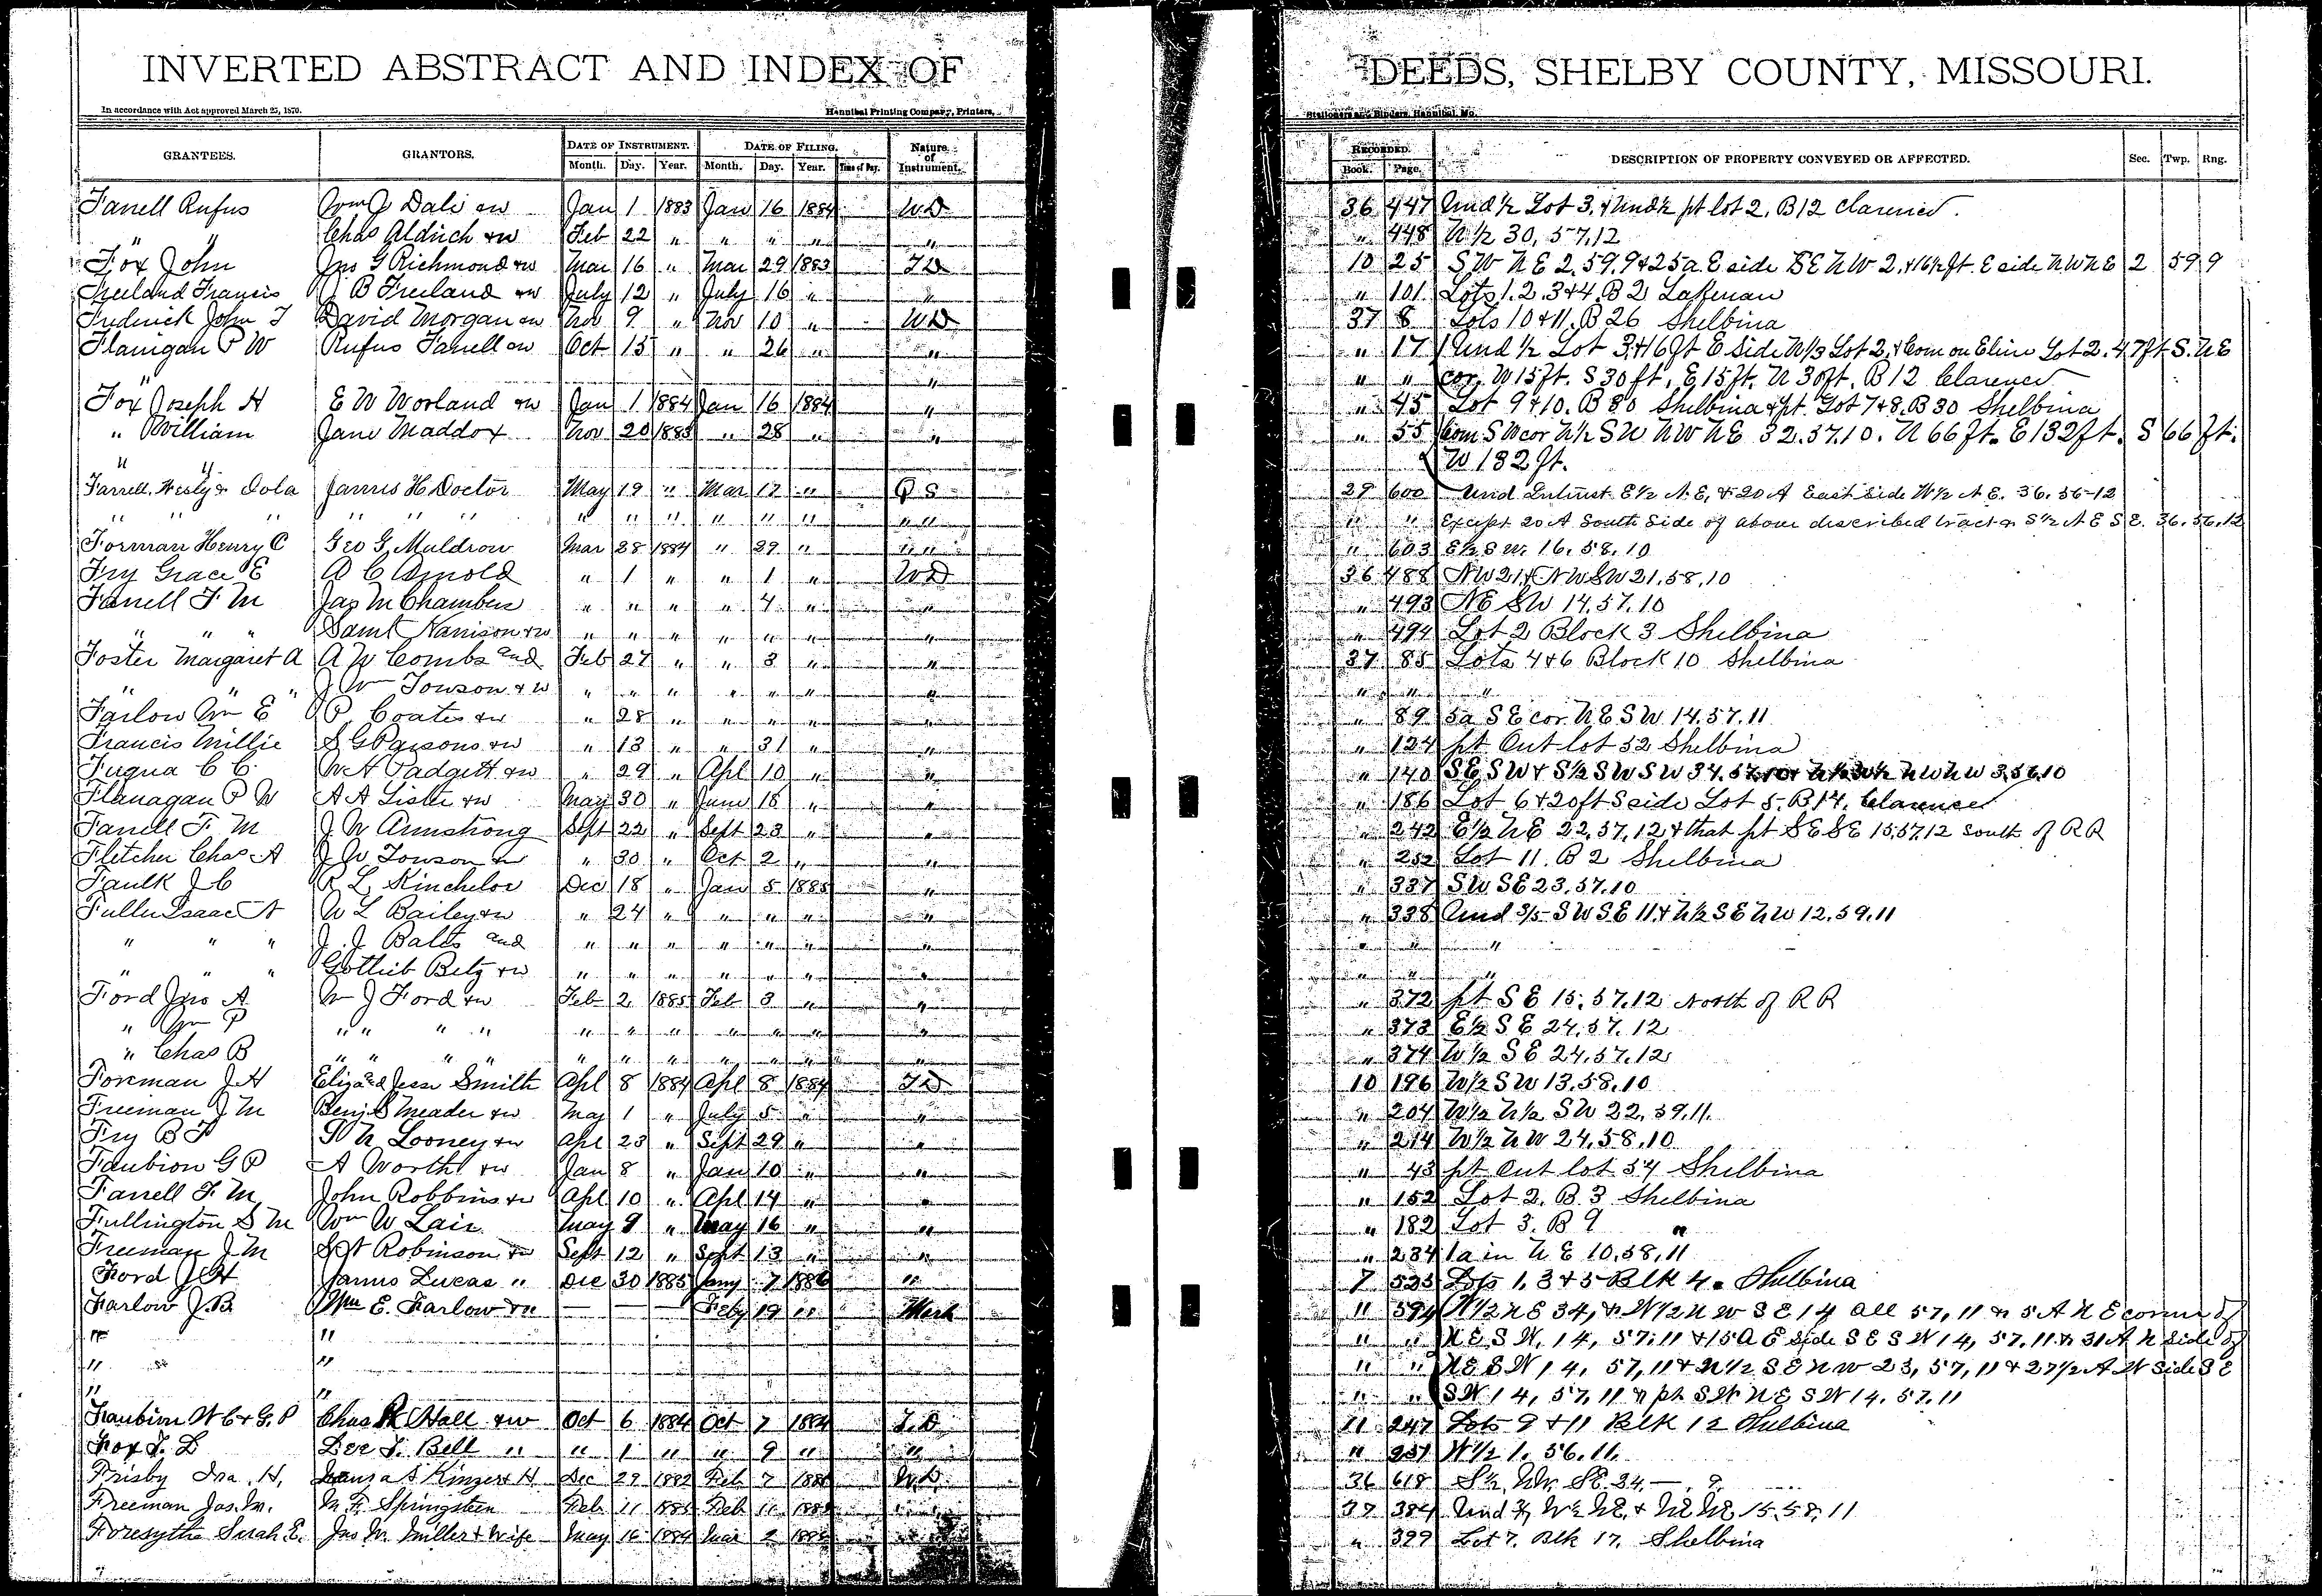 INVERTED ABSTRACT AND INDEX OF DEEDS, SHELBY COUNTY, MISSOURI.
In accordance with Act approved March 25, 1870. Hannibal Printing Company, Printers, Stationers and Binders, Hannibal, Mo.
GRANTEES. GRANTORS. DATE OF INSTRUMENT. DATE OF FILING. Nature of Instrument. RECORDED. DESCRIPTION OF PROPERTY CONVEYED OR AFFECTED. Sec. Twp. Rng.
Month. Day. Year. Month. Day. Year. Time of Day. Book. Page.
Farrell Rufus Wm J Dale &w Jan 1 1883 Jan 16 1884 WD 36 447 Und ½ Lot 3, & Und ½ pt lot 2, B12 Clarence.
" " Chas Aldrich &w Feb 22 " " " " " " 448 N½ 30, 57, 12
Fox John Jno G Richmond &w Mar 16 " Mar 29 1883 TD 10 25 SW NE 2.59.9 & 25a E side SE NW 2, & 16½ ft. E side NW NE 2 59 9
Freeland Francis J B Freeland &w July 12 " July 16 " " " 101 Lots 1.2.3&4. B2 Lakenan
Frederick John T David Morgan &w Nov 9 " Nov 10 " WD 37 8 Lots 10 & 11. B 26 Shelbina
Flanigan P W Rufus Farrell &w Oct 15 " " 26 " " " 17 Und ½ Lot 3, & 16 ft E side N⅓ Lot 2, & Com on E line Lot 2. 47 ft S. NE
" " " " cor. W 15 ft. S 30 ft, E 15 ft. N 30 ft. B 12 Clarence
Fox Joseph H E W Worland &w Jan 1 1884 Jan 16 1884 " " 45 Lot 9 & 10. B 30 Shelbina & pt. Lot 7 & 8. B 30 Shelbina
" William Jane Maddox Nov 20 1883 " 28 " " " 55 Com SW cor N½ SW NW NE 32.57.10. N 66 ft. E 132 ft. S 66 ft.
" " W 132 ft.
Farrell, Wesly & Dola James H Doctor May 19 " Mar 17 " Q S 29 600 Und Interest E½ N.E. & 20 A East side W½ N E. 36.56-12
" " " " " " " " " " " " " " " " " Except 20 A South Side of above described tract & S½ N E S E. 36.56.12
Forman Henry C Geo G. Muldrow Mar 28 1884 " 29 " " " " 603 E½ S W. 16, 58, 10
Fry Grace E A C Arnold " 1 " " 1 " WD 36 488 NW 21 & NW SW 21,58,10
Farrell F M Jas M Chambers " " " " 4 " " " 493 NE SW 14,57,10
" " " Saml Harrison &w " " " " " " " " 494 Lot 2 Block 3 Shelbina
Foster Margaret A A W Combs and Feb 27 " " 3 " " 37 85 Lots 4 & 6 Block 10 Shelbina
" " " J Wm Towson & w " " " " " " " " " "
Farlow Wm E P. Coates &w " 28 " " " " " " 89 5a SE cor. NE SW 14.57.11
Francis Millie S G Parsons &w " 13 " " 31 " " " 124 pt Out lot 32 Shelbina
Fuqua C C. W H Padgett &w " 29 " Apl 10 " " " 140 SE SW & S½ SW SW 34.57.10 & NW NW 3.56.10
Flanagan P W A A Liske &w May 30 " June 18 " " " 186 Lot 6 & 20 ft S side Lot 5. B14, Clarence
Farrell F. M J. W Armstrong Sept 22 " Sept 23 " " " 242 E½ NE 22,57,12, & that pt SE SE 15.57.12 South of RR
Fletcher Chas A J W Towson &w " 30 " Oct 2 " " " 252 Lot 11. B 2 Shelbina
Faulk J C R L. Kincheloe Dec 18 " Jan 5 1885 " " 337 SW SE 23.57.10
Fuller Isaac A W L Bailey &w " 24 " " " " " " 338 Und 3/5 SW SE 11, & N½ SE NW 12.59.11
" " " J. J Balts and " " " " " " " " " "
" " " Gottlieb Betz &w " " " " " " " " " "
Ford Jno A W J Ford &w Feb 2 1885 Feb 3 " " " 372 pt SE 15.57.12 North of RR
" Wm P " " " " " " " " " " " " 373 E½ SE 24.57.12
" Chas B " " " " " " " " " " " " 374 W½ SE 24.57.12
Foreman J H Eliza and Jesse Smith Apl 8 1884 Apl 8 1884 TD 10 196 W½ SW 13.58.10
Freeman J M Benj S Meader &w May 1 " July 5 " " " 204 W½ N½ SW 22.59.11.
Fry B F W N Looney &w Apl 23 " Sept 29 " " " 214 W½ NW 24.58.10
Faubion G P A Worth &w Jan 8 " Jan 10 " " " 43 pt Out lot 34 Shelbina
Farrell F. M John Robbins &w Apl 10 " Apl 14 " " " 152 Lot 2. B.3 Shelbina
Fullington S M Wm W Lair May 9 " May 16 " " " 182 Lot 3. B 9 "
Freeman J. M Robinson &w Sept 12 " Sept 13 " " " 234 1a in NE 10.58.11
Ford J H James Lucas " Dec 30 1885 Jany 7 1886 " 7 533 Lots 1, 3 & 5 Blk 4. Shelbina
Farlow J.B. Wm E. Farlow &w — — — Feby 19 " " 594 N½ N E 34, & N½ N W S E 14 all 57, 11 & 5 A N E corner of
" " " " N.E.S W. 14, 57.11 & 15 A E side S E S W 14, 57.11 & 31 A N side of
" " " " N E S W 14, 57,11 & N½ S E N W 23, 57, 11 & 27½ A W side S E
" " " " S W 14, 57, 11 & pt S W N E S W 14. 57.11
Faubion W C & G. P Chas R Hall &w Oct 6 1884 Oct 7 1884 T.D. 11 247 Lots 9 & 11 Blk 12 Shelbina
Fox J. D Lee T. Bell " " 1 " " 9 " " " 251 W½ 1. 56.11.
Frisby Ira. H. Kinzer & H Dec 29 1882 Feb 7 W.D. 36 618 S½ NW. SE. 34.
Freeman Jas. M. M. F. Springsteen Feb 11 1885 Feb 11 1885 " 37 384 Und W½ NE. & NE NE. 15.58.11
Forsythe Sarah E. Jno M. Miller & Wife May 16 1884 Mar 2 1885 " " 399 Lot 7. Blk 17. Shelbina